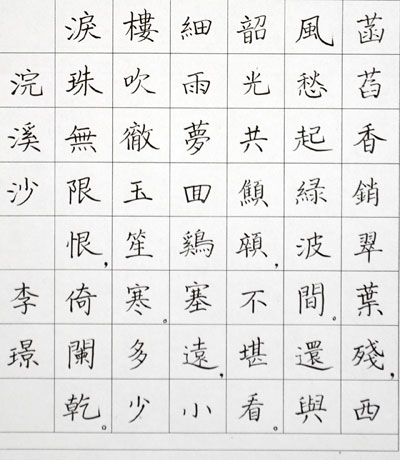 菡萏香銷翠葉殘,西
風愁起綠波間。還與
韶光共顦顇,不堪看。
細雨夢囬鷄塞遠,小
樓吹徹玉笙寒。多少
淚珠無限恨,倚闌乾。
浣溪沙 李璟